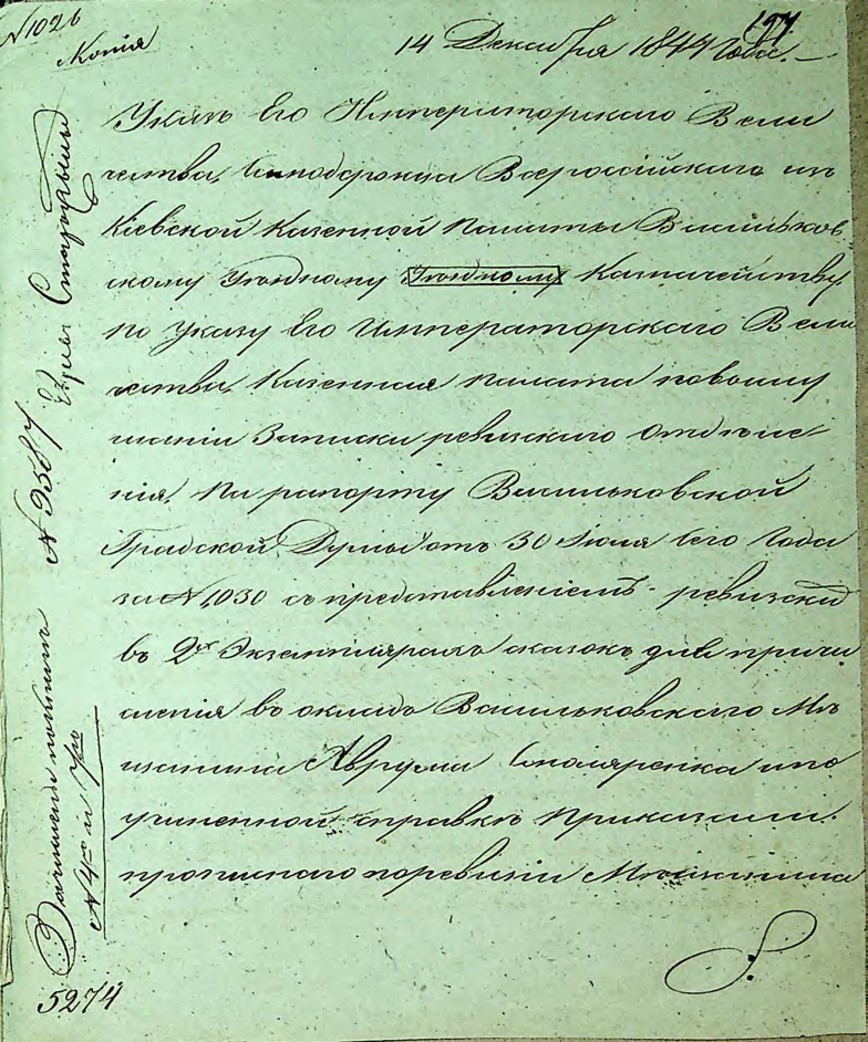 N 1026
Копія
197.
14 Декабря 1844 Года.
Указъ Его Императорскаго Вели
чества, Самодержца Всероссійскаго изъ
Кіевской Казенной Палаты Васильков
скому Уездному Уездному Казначейству,
по Указу Его Императорскаго Вели
чества, Казенная Палата по выслу
шаніи Записки ревизскаго Отделе-
нія, На рапорту Васильковской
Градской Думы отъ 30 Іюля сего Года
за N 1030 съ представленіемъ ревизски
въ 2хъ Экземплярахъ сказокъ для причи
сленія въ окладъ Васильковскаго Мѣ
щанина Аврума Столяренка и по
учиненной справкѣ Приказали:
прописнаго по ревизіи Мѣщанина
N 9587 Старый
N 4 и
5274